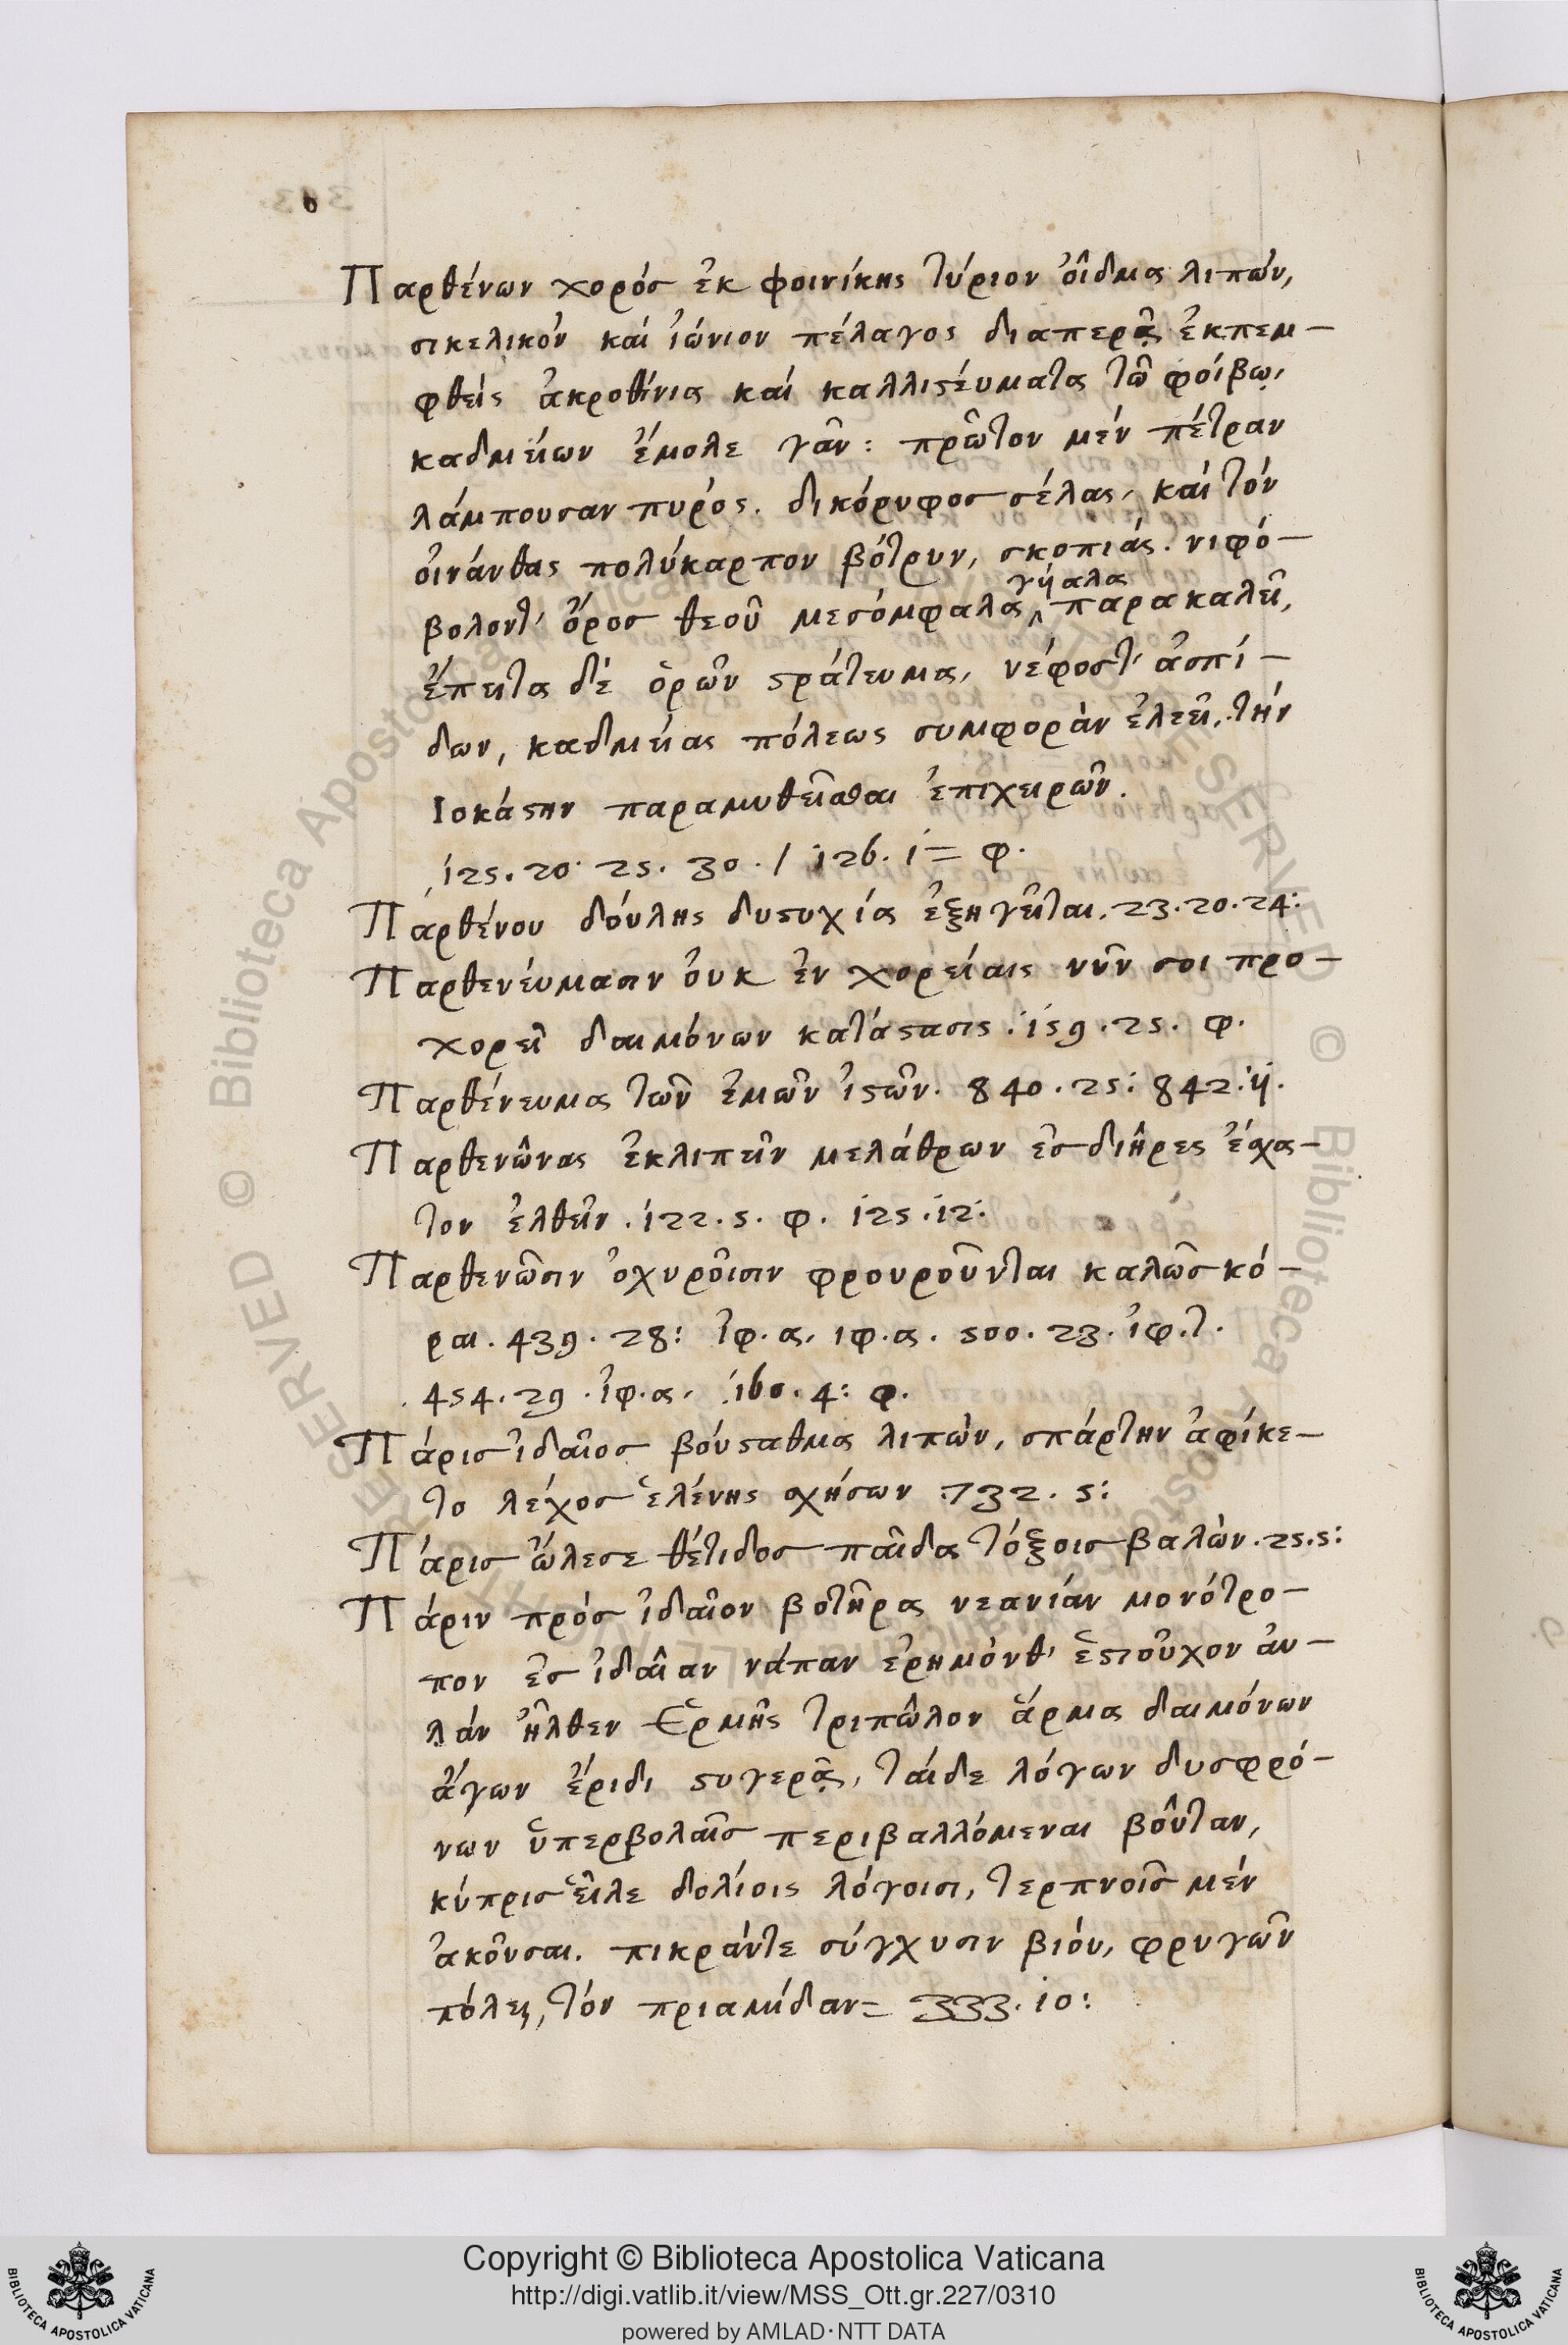 Παρθένων χορός ἐκ φοινίκης τύριον ὀῖδμα λιπών,
σικελικόν καί ἰώνιον πέλαγος διαπερᾷ ἐκπεμ-
φθείς ἀκροθίνια καί καλλιςέυματα τῶ φοίβῳ,
καδμείων ἔμολε γᾶν: πρῶτον μέν πέτραν
λάμπουσαν πυρός. δικόρυφος σέλας, καί τόν
οἰνάνθας πολύκαρπον βότρυν, σκοπιάς. νιφό-
βολοντ' ὄρος θεοῦ μεσόμφαλα γύαλα παρακαλεῖ,
ἔπειτα δέ ὁρῶν ςράτευμα, νέφοστ' ἀσπί-
δων, καδμείας πόλεως συμφορὰν ἐλεεῖ, τήν
Ιοκάςην παραμυθεῖσθαι ἐπιχειρῶν.
125. 20. 25. 30. / 126. 1 = φ.
Παρθένου δούλης δυςυχία ἐξηγεῖται. 23. 20. 24:
Παρθενέυμασιν ὀυκ ἐν χορείαις νῦν σοι προ-
χορεῖ δαιμόνων κατάςασις. 159. 25. φ.
Παρθένευμα τῶν ἐμῶν ἱςῶν. 840. 25: 842. ij.
Παρθενῶνας ἐκλιπεῖν μελάθρων ἐς διῆρες ἔσχα-
τον ἐλθεῖν. 122. 5. φ. 125. 12:
Παρθενῶσιν ὀχυρῖοσιν φρουροῦνται καλῶς κό-
ραι. 439. 28: ἰφ. α. ιφ. α. 500. 23. ἰφ. τ.
454. 29. ἰφ. α. 160. 4: φ.
Πάρις ἰδαῖος βούςαθμα λιπὼν, σπάρτην ἀφίκε-
το λέχος ἑλένης σχήσων 732. 5:
Πάρις ὤλεσε θέτιδος παῖδα τόξοις βαλὼν. 25. 5:
Πάριν πρός ἰδαῖον βοτῆρα νεανίάν μονότρο-
πον ἐς ἰδαῖαν νάπαν ἐρημόνθ' ἑςιοῦχον ἀυ-
λάν ἦλθεν Ἑρμῆς τριπῶλον ἅρμα δαιμόνων
ἄγων ἔριδι ςυγερᾷ, ταίδε λόγων δυσφρό-
νων ὑπερβολαῖς περιβαλλόμεναι βοῦταν,
κύπρις εἷλε δολίοις λόγοισι, τερπνοῖς μέν
ἀκοῦσαι. πικράντε σύγχυσιν βιόυ, φρυγῶν
πόλει, τόν πριαμίδαν = 333. 10:
Copyright © Biblioteca Apostolica Vaticana
http://digi.vatlib.it/view/MSS_Ott.gr.227/0310
powered by AMLAD·NTT DATA